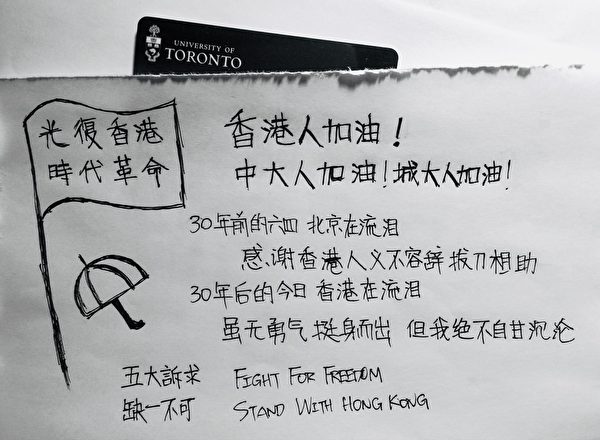 UNIVERSITY OF
TORONTO
光復香港
時代革命
香港人加油！
中大人加油！城大人加油！
30年前的六四 北京在流泪
感谢香港人义不容辞 拔刀相助
30年后的今日 香港在流泪
虽无勇气 挺身而出 但我绝不自甘沉沦
五大訴求 FIGHT FOR FREEDOM
缺一不可 STAND WITH HONG KONG